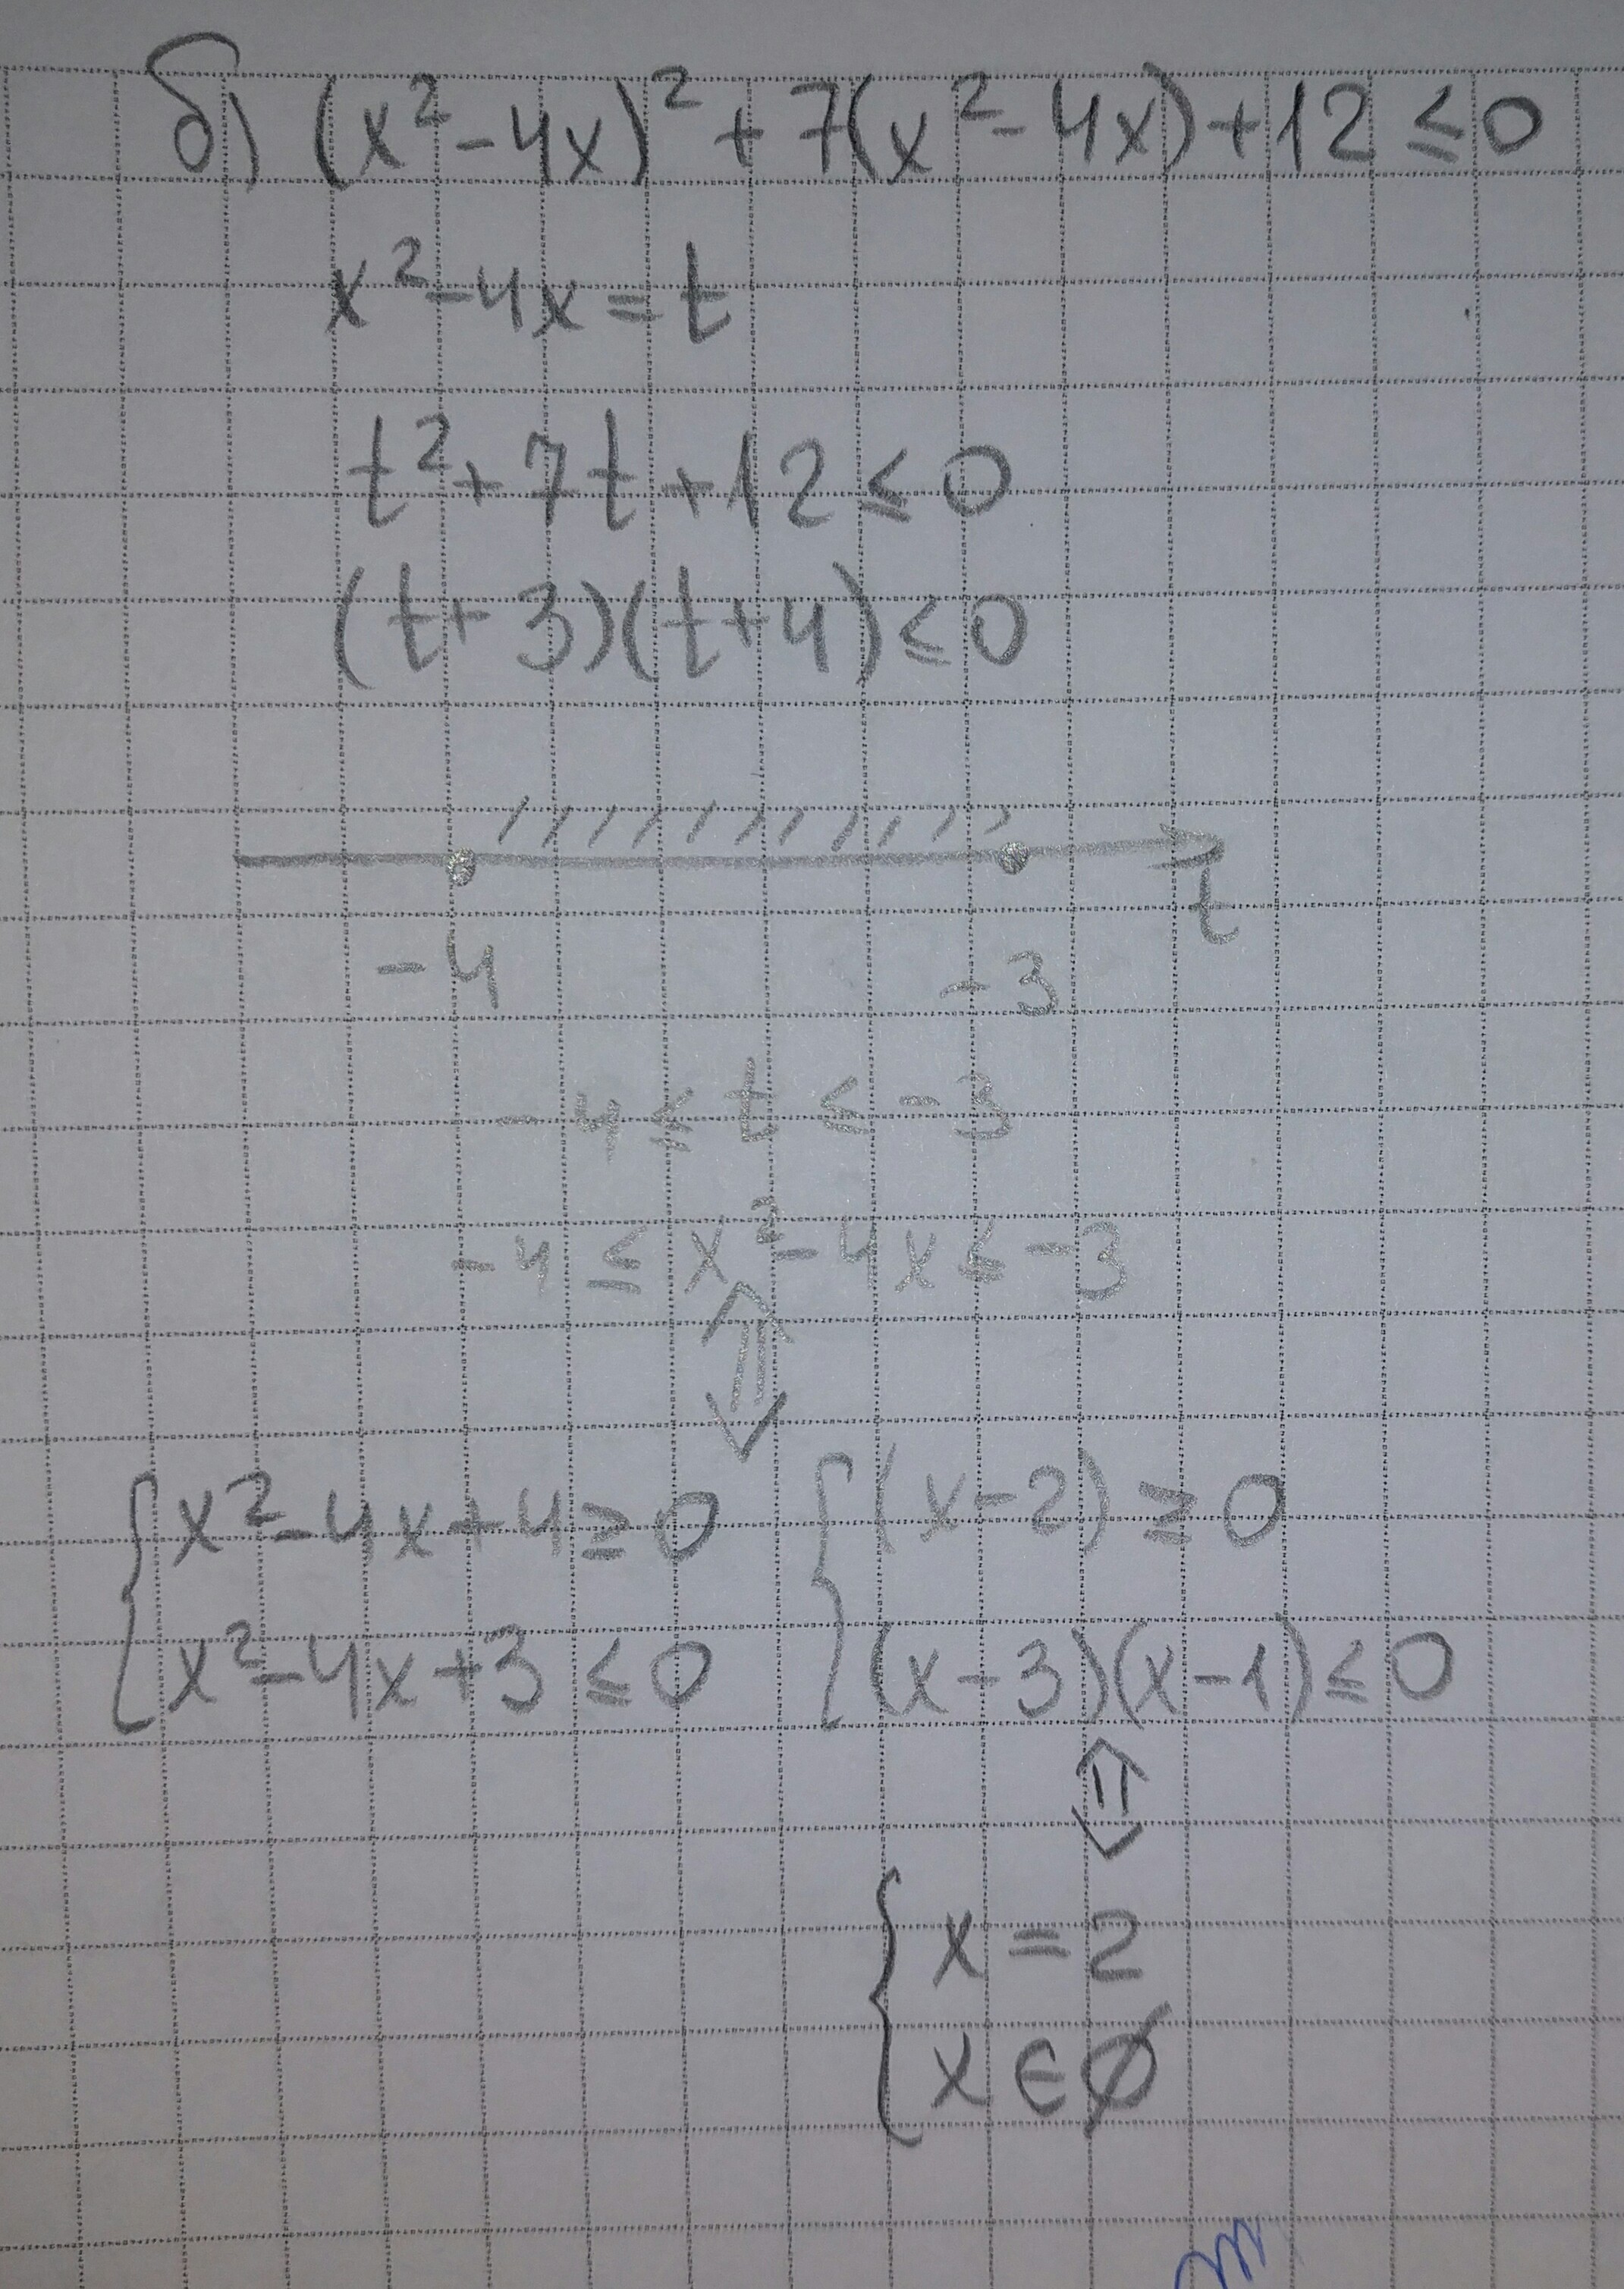 б) (x²-4x)²+7(x²-4x)+12≤0
x²-4x=t
t²+7t+12≤0
(t+3)(t+4)≤0
t
-4 -3
-4≤t≤-3
-4≤x²-4x≤-3
⇕
{x²-4x+4≥0 {(x-2)≥0
{x²-4x+3≤0 {(x-3)(x-1)≤0
⇕
{x=2
{x∈∅